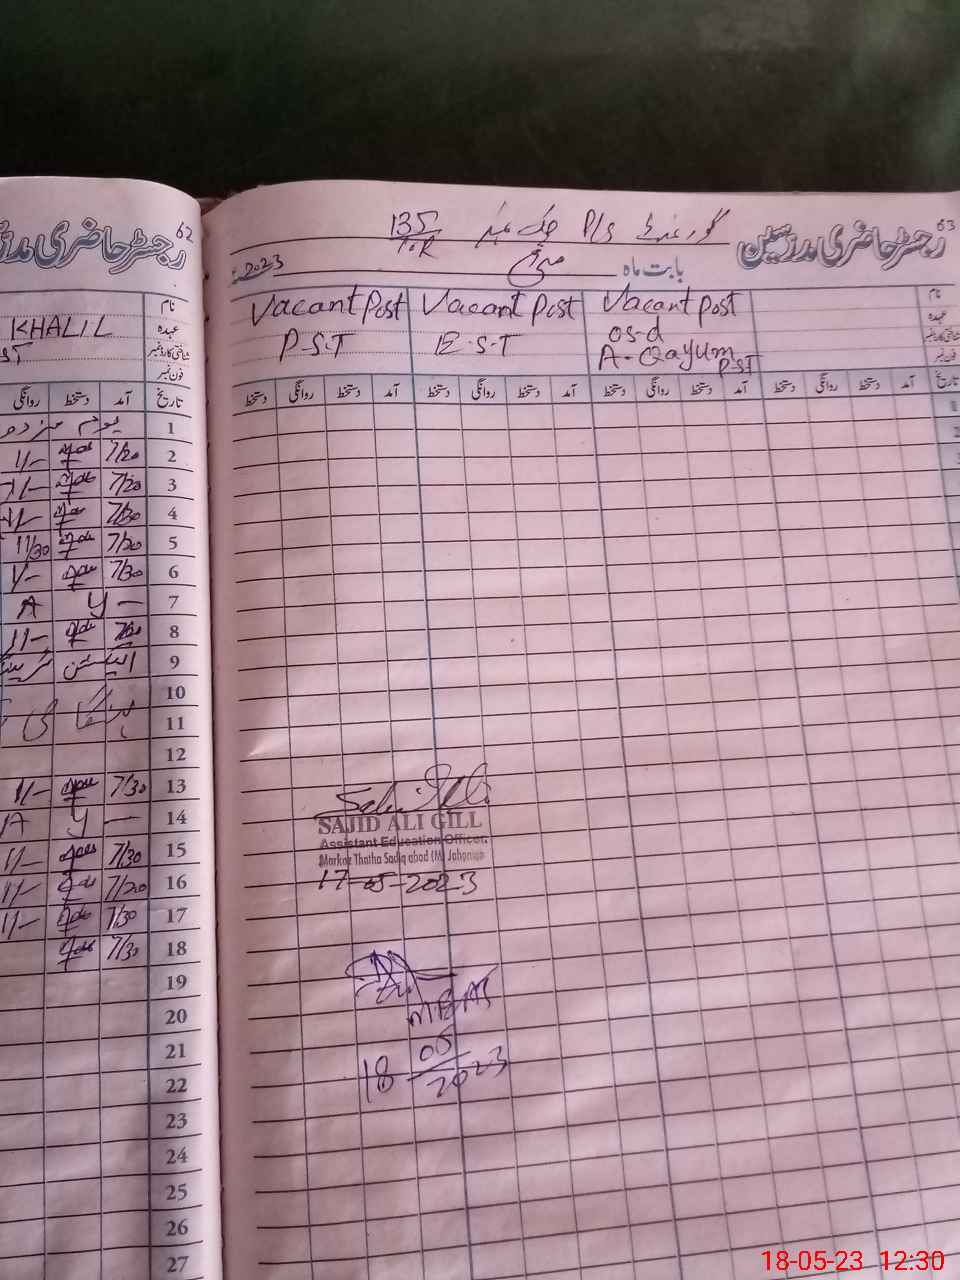 62
رجسٹر حاضری
نام
عہدہ
شناختی کارڈ نمبر
فون نمبر
KHALIL
تاریخ آمد دستخط روانگی
1 یوم
2 7/20 1/-
3 7/20
4 7/30
5 7/20 11/30
6 7/30 1/-
7 — y A
8 11/-
9 الیکشن
10
11
12
13 7/30 11/-
14 — y A
15 7/30 11/-
16 7/20 11/-
17 7/30 11/-
18 7/30
19
20
21
22
23
24
25
26
27
63
رجسٹر حاضری مدرسین
گورنمنٹ P/S چک نمبر 135
10.R
بابت ماہ مئی 2023ء
نام
عہدہ
شناختی کارڈ نمبر
فون نمبر
Vacant Post
P.S.T
Vacant Post
E.S.T
Vacant Post
os-d
A-Qayum
P.ST
تاریخ آمد دستخط روانگی دستخط آمد دستخط روانگی دستخط آمد دستخط روانگی دستخط آمد دستخط روانگی دستخط
SAJID ALI GILL
Assistant Education Officer
Markaz Thatha Sadiq abad (M) Jahanian
17-05-2023
18 05
2023
18-05-23 12:30